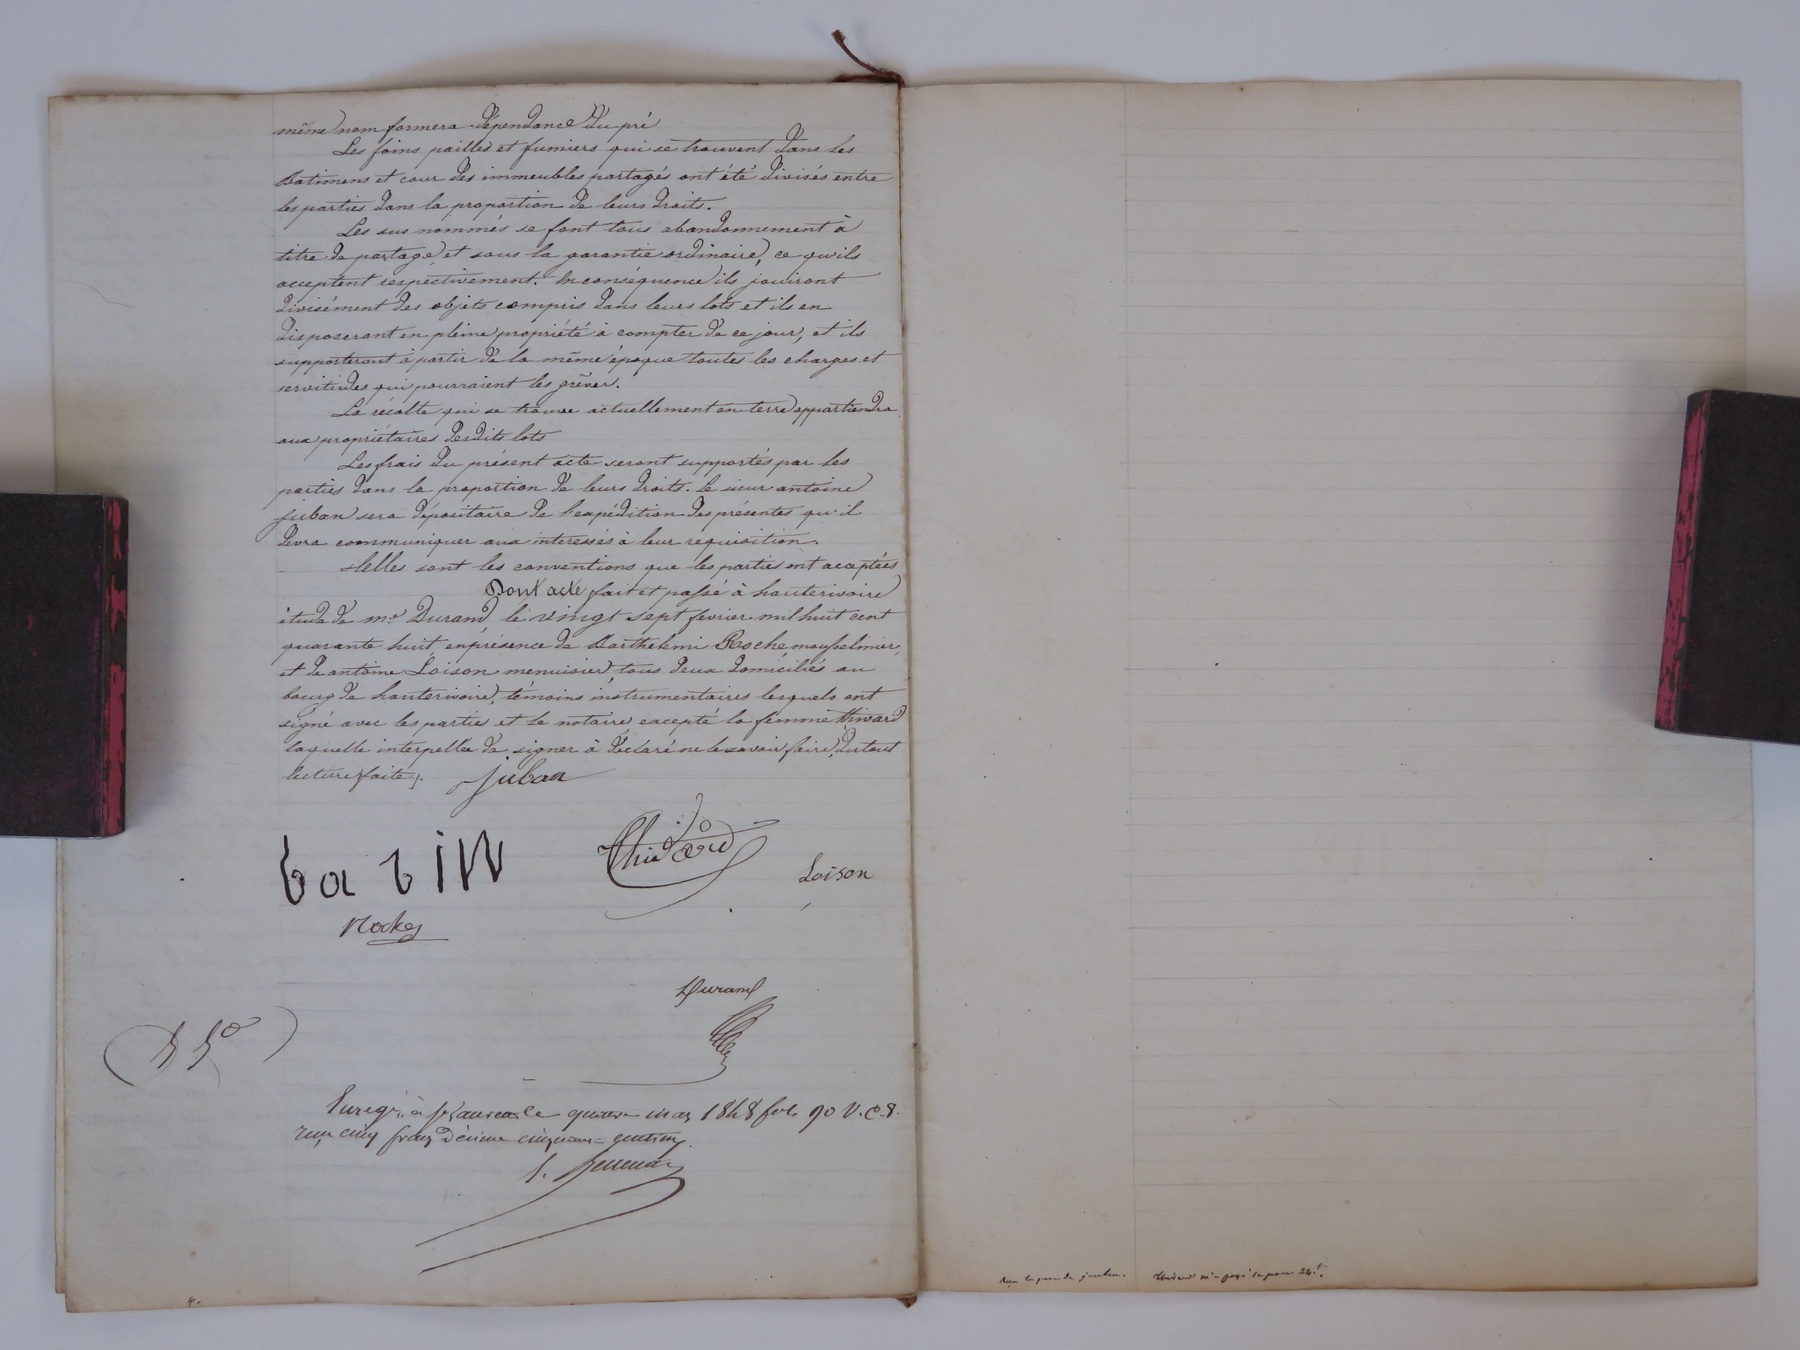 même nom formera dépendance du pré
Les foins pailles et fumiers qui se trouvent dans les
Batimens et cour des immeubles partagés ont été divisés entre
les parties dans la proportion de leurs droits.
Les sus nommés se font tous abandonnement à
titre de partage et sous la garantie ordinaire, ce qu'ils
acceptent respectivement. En conséquence ils jouiront
divisément des objets compris dans leurs lots et ils en
disposeront en pleine propriété à compter de ce jour, et ils
supporteront à partir de la même époque toutes les charges et
servitudes qui pourraient les gréver.
La récolte qui se trouve actuellement en terre appartiendra
aux propriétaires desdits lots
Les frais du présent acte seront supportés par les
parties dans la proportion de leurs droits. le sieur antoine
juban sera dépositaire de l'expédition des présentes qu'il
devra communiquer aux interessés à leur requisition.
telles sont les conventions que les parties ont acceptées
Dont acte fait et passé à hauterivoire
étude de me. Durand, le vingt sept fevrier mil huit cent
quarante huit en présence de Barthelemi Roche mousselinier,
et de antoine Loison menuisier, tous deux domiciliés au
bourg de hauterivoire, témoins instrumentaires lesquels ont
signé avec les partie et le notaire excepté la femme thivard
laquelle interpellée de signer à déclaré ne le savoir faire, du tout
lecture faite;. juban
Thivard
Loison
Roche
Durand
Enregé. à St Laurent le quatre mars 1848 fol. 90 V. C. 8.
reçu cinq francs décime cinquante centimes.
4.